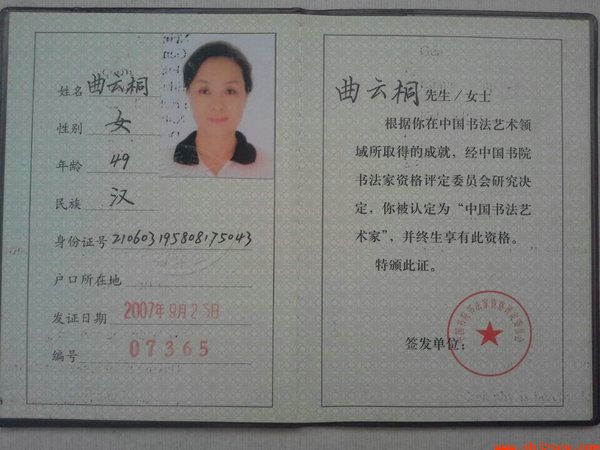 姓名 曲云桐
性别 女
年龄 49
民族 汉
身份证号 210603195808175043
户口所在地
发证日期 2007年9月25日
编号 07365
曲云桐 先生/女士
根据你在中国书法艺术领
域所取得的成就，经中国书院
书法家资格评定委员会研究决
定，你被认定为“中国书法艺
术家”，并终生享有此资格。
特颁此证。
签发单位：
中国书院书法家资格评定委员会